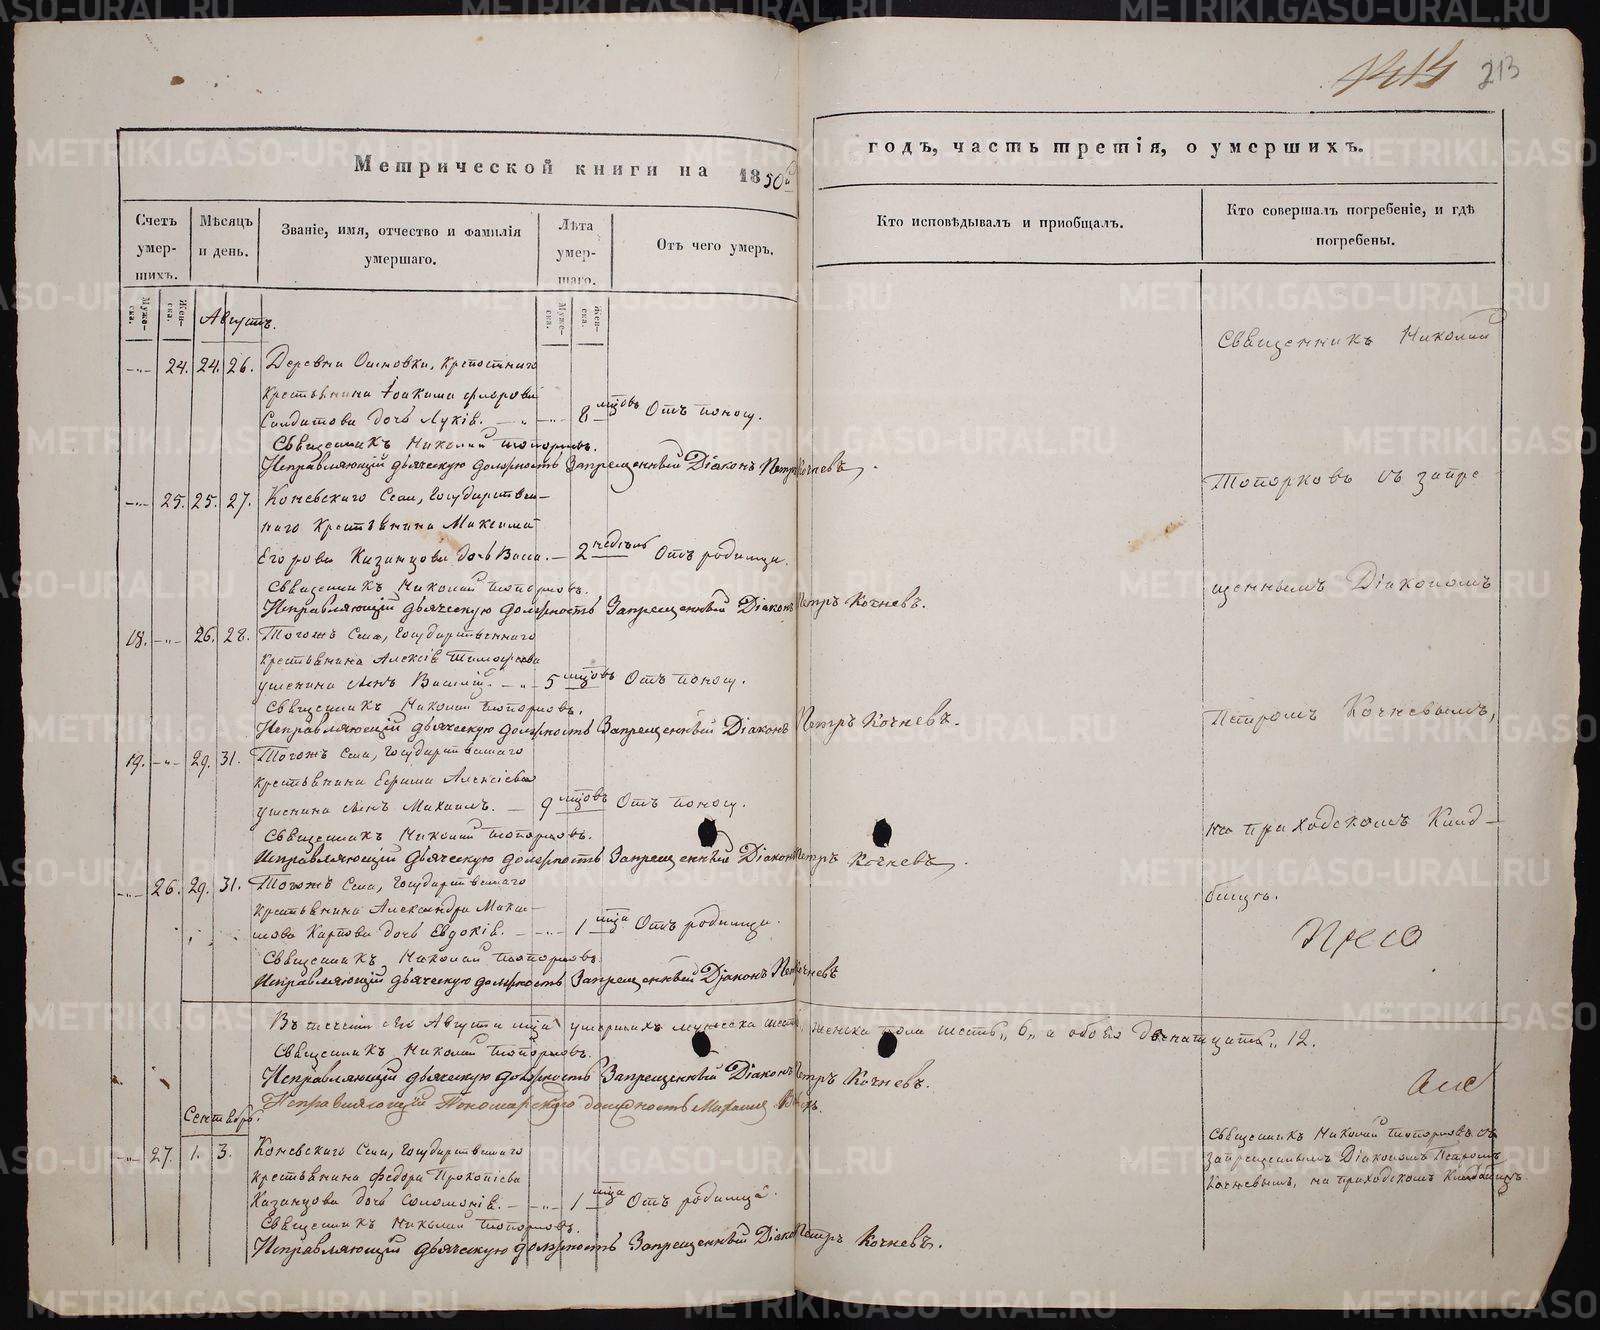 213
Метрической книги на 1850й
годъ, часть третія, о умершихъ.
Счетъ умер-шихъ.
Мѣсяцъ и день.
Званіе, имя, отчество и фамилія умершаго.
Лѣта умер-шаго.
Отъ чего умеръ.
Кто исповѣдывалъ и приобщалъ.
Кто совершалъ погребеніе, и гдѣ погребены.
Муже-ска.
Жен-ска.
Муже-ска.
Жен-ска.
Августъ.
24. 24. 26. Деревни Осиновки, крепостнаго
крестьянина Іоакима Флорова
Солдатова дочь Лукія. 8 мцовъ Отъ поносу.
Священникъ Николай Топорковъ.
Исправляющій дьяческую должность Запрещенный Діаконъ Петръ Кочневъ.
25. 25. 27. Коневскаго Села, Государствен-
наго крестьянина Максима
Егорова Казанцова дочь Васса. 2 недѣль Отъ родимца.
Священникъ Николай Топорковъ.
Исправляющій дьяческую должность Запрещенный Діаконъ Петръ Кочневъ.
18. 26. 28. Тогожъ Села, Государственнаго
крестьянина Алексія Тимофеева
Ушенина сынъ Василій. 5 мцовъ Отъ поносу.
Священникъ Николай Топорковъ.
Исправляющій дьяческую должность Запрещенный Діаконъ Петръ Кочневъ.
19. 29. 31. Тогожъ Села, Государственнаго
крестьянина Ефима Алексіева
Ушенина сынъ Михаилъ. 9 мцовъ Отъ поносу.
Священникъ Николай Топорковъ.
Исправляющій дьяческую должность Запрещенный Діаконъ Петръ Кочневъ.
26. 29. 31. Тогожъ Села, Государственнаго
крестьянина Александра Макси-
мова Карпова дочь Евдокія. 1 мца Отъ родимца.
Священникъ Николай Топорковъ.
Исправляющій дьяческую должность Запрещенный Діаконъ Петръ Кочневъ
Въ теченіи сего Августа мца умершихъ мужеска шесть, женска пола шесть „6„ а обоего двенатцать „12.
Священникъ Николай Топорковъ.
Исправляющій дьяческую должность Запрещенный Діаконъ Петръ Кочневъ.
Исправляющій Пономарскую должность
Сентябрь.
27. 1. 3. Коневскаго Села, Государственнаго
крестьянина Федора Прокопіева
Казанцова дочь Соломонія. 1 мца Отъ родимца.
Священникъ Николай Топорковъ.
Исправляющій дьяческую должность Запрещенный Діаконъ Петръ Кочневъ.
Священникъ Николай
Топорковъ съ запре
щеннымъ Діакономъ
Петромъ Кочневымъ,
на приходскомъ Клад-
бищѣ.
Священникъ Николай Топорковъ съ
запрещеннымъ Діакономъ Петромъ
Кочневымъ, на приходскомъ Кладбищѣ.
METRIKI.GASO-URAL.RU